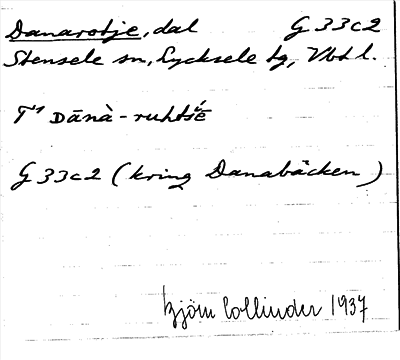 Danarotje, dal G 33c2
Stensele sn, Lycksele tg, Vbtl.
T¹ Dānà-ruhtśē
G 33c2 (kring Danabäcken)
Björn Collinder 1937